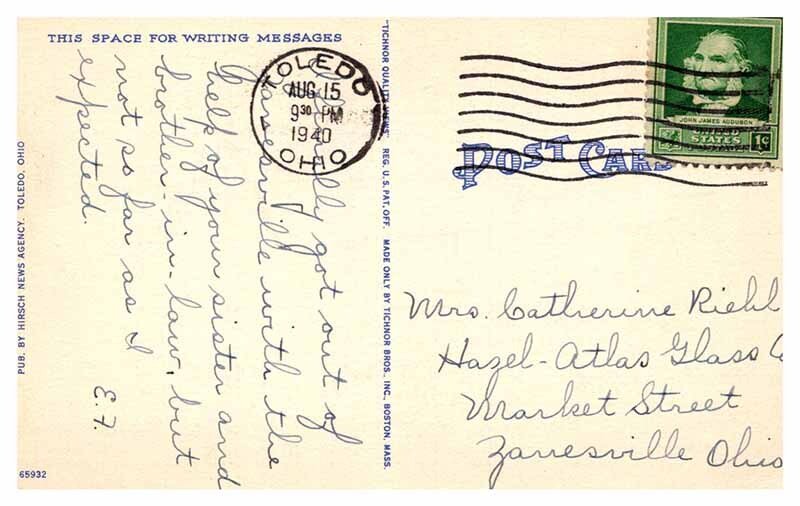 THIS SPACE FOR WRITING MESSAGES
got out of
Zanesville with the
help of your sister and
brother-in-law, but
not so far as I
expected.
E.F.
PUB. BY HIRSCH NEWS AGENCY, TOLEDO, OHIO
65932
"TICHNOR QUALITY REG. U.S. PAT. OFF. MADE ONLY BY TICHNOR BROS., INC., BOSTON, MASS.
TOLEDO
AUG 15
9 30 PM
1940
OHIO
JOHN JAMES AUDUBON
UNITED
STATES
1¢
POST CARD
Mrs. Catherine Riehl
Hazel-Atlas Glass C
Market Street
Zanesville Ohio